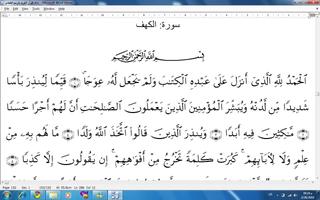 سورة: الكهف
بِسْمِ ٱللَّهِ ٱلرَّحْمَٰنِ ٱلرَّحِيمِ
ٱلْحَمْدُ لِلَّهِ ٱلَّذِىٓ أَنزَلَ عَلَىٰ عَبْدِهِ ٱلْكِتَٰبَ وَلَمْ يَجْعَل لَّهُۥ عِوَجَا ۜ ۝ قَيِّمًا لِّيُنذِرَ بَأْسًا
شَدِيدًا مِّن لَّدُنْهُ وَيُبَشِّرَ ٱلْمُؤْمِنِينَ ٱلَّذِينَ يَعْمَلُونَ ٱلصَّٰلِحَٰتِ أَنَّ لَهُمْ أَجْرًا حَسَنًا
۝ مَّٰكِثِينَ فِيهِ أَبَدًا ۝ وَيُنذِرَ ٱلَّذِينَ قَالُوا۟ ٱتَّخَذَ ٱللَّهُ وَلَدًا ۝ مَّا لَهُم بِهِۦ مِنْ
عِلْمٍ وَلَا لِءَابَآئِهِمْ ۚ كَبُرَتْ كَلِمَةً تَخْرُجُ مِنْ أَفْوَٰهِهِمْ ۚ إِن يَقُولُونَ إِلَّا كَذِبًا ۝